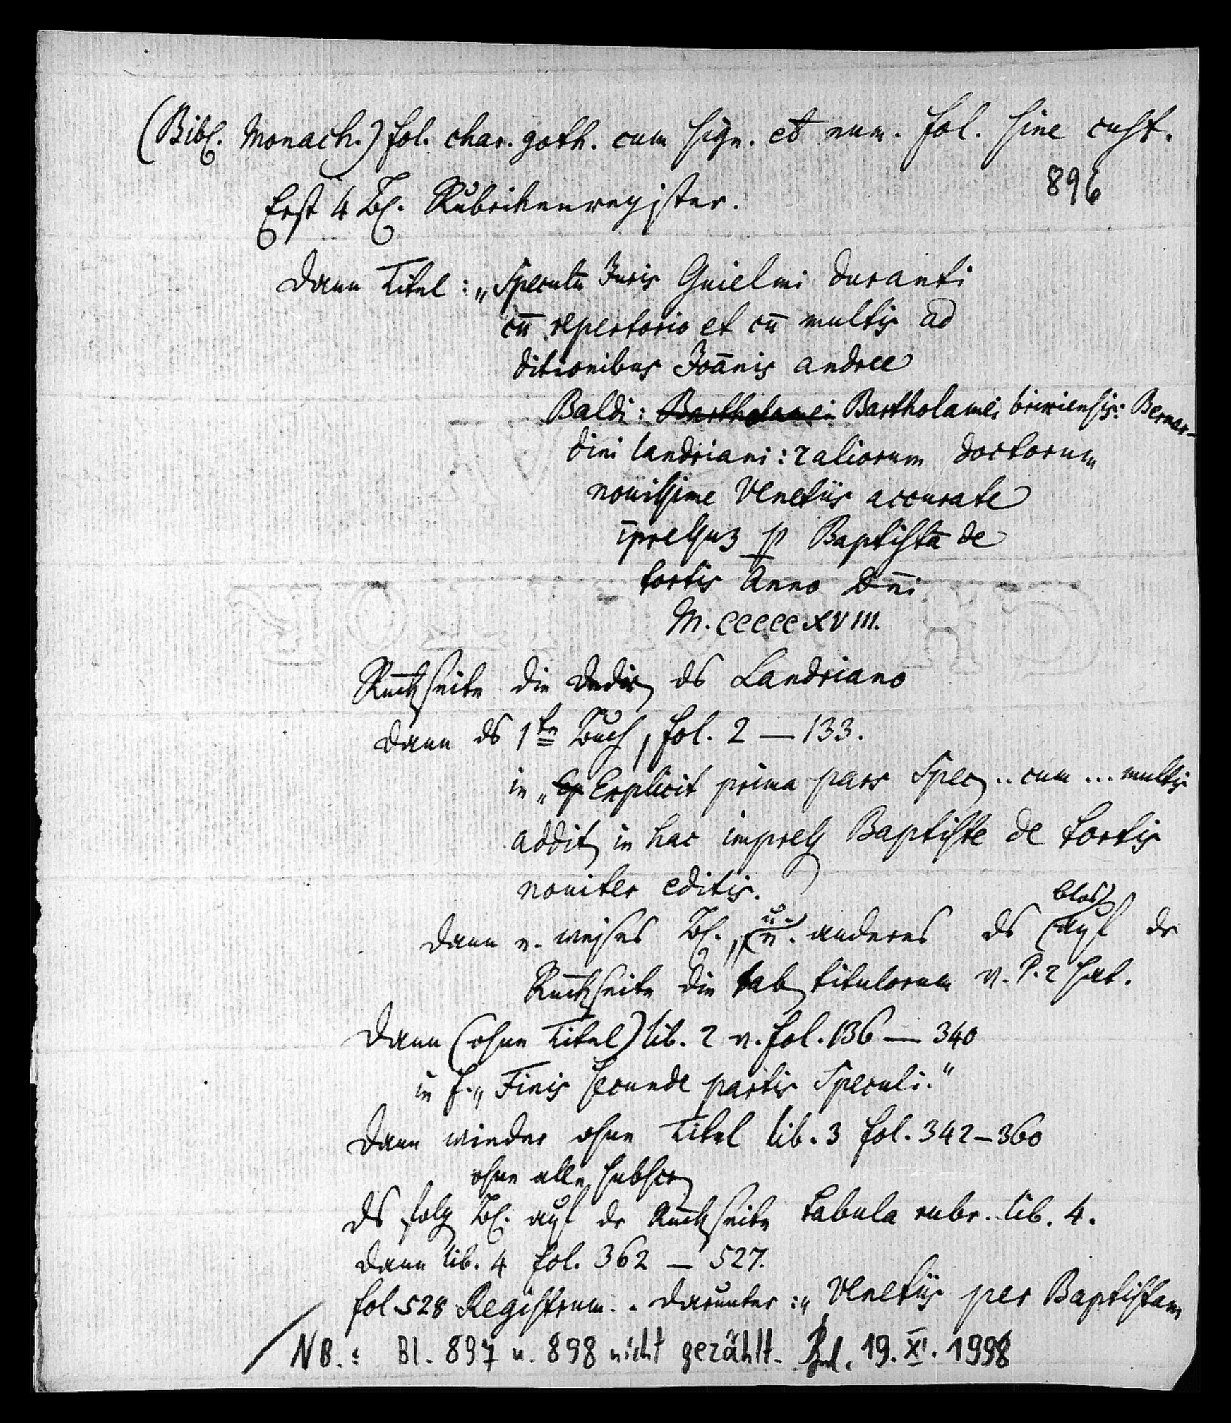 (Bibl. Monach.) fol. char. goth. cum sign. et num. fol. sine cust.
896
Erst 4 Bl. Rubrikenregister.
Dann Titel: „Speculū Juris Guielmi Duranti
cū repertorio et cū multis ad
ditionibus Joānis andree
Baldi: Bartholamei Bartholamei brixiensis: Bernar-
dini landriani: 2aliorum doctorum
nouissime Venetiis accurate
īpressuz p Baptistā de
tortis Anno Dñi
M. ccccc XVIII.
Rückseite die Dedic ds Landriano
dann ds 1te Buch, fol. 2 — 133.
in „Explicit prima pars Spec .. cum ... multis
addit in hac impress Baptiste de tortis
noviter editis.
Dann e. weises Bl., u. anderes ds blos auf dr
Rückseite die tab titulorum v. P. 2 hat.
Dann (ohne Titel) lib. 2 v. fol. 136 — 340
in f. „Finis secunde partis Speculi."
Dann wieder ohne Titel lib. 3 fol. 342 – 360
ohne alle subscr
ds folg Bl. auf dr Rückseite tabula rubr. lib. 4.
Dann lib. 4 fol. 362 — 527.
fol 528 Registrum. . Darunter: „Venetiis per Baptistam
NB.: Bl. 897 u. 898 nicht gezählt. 19. XI. 1998